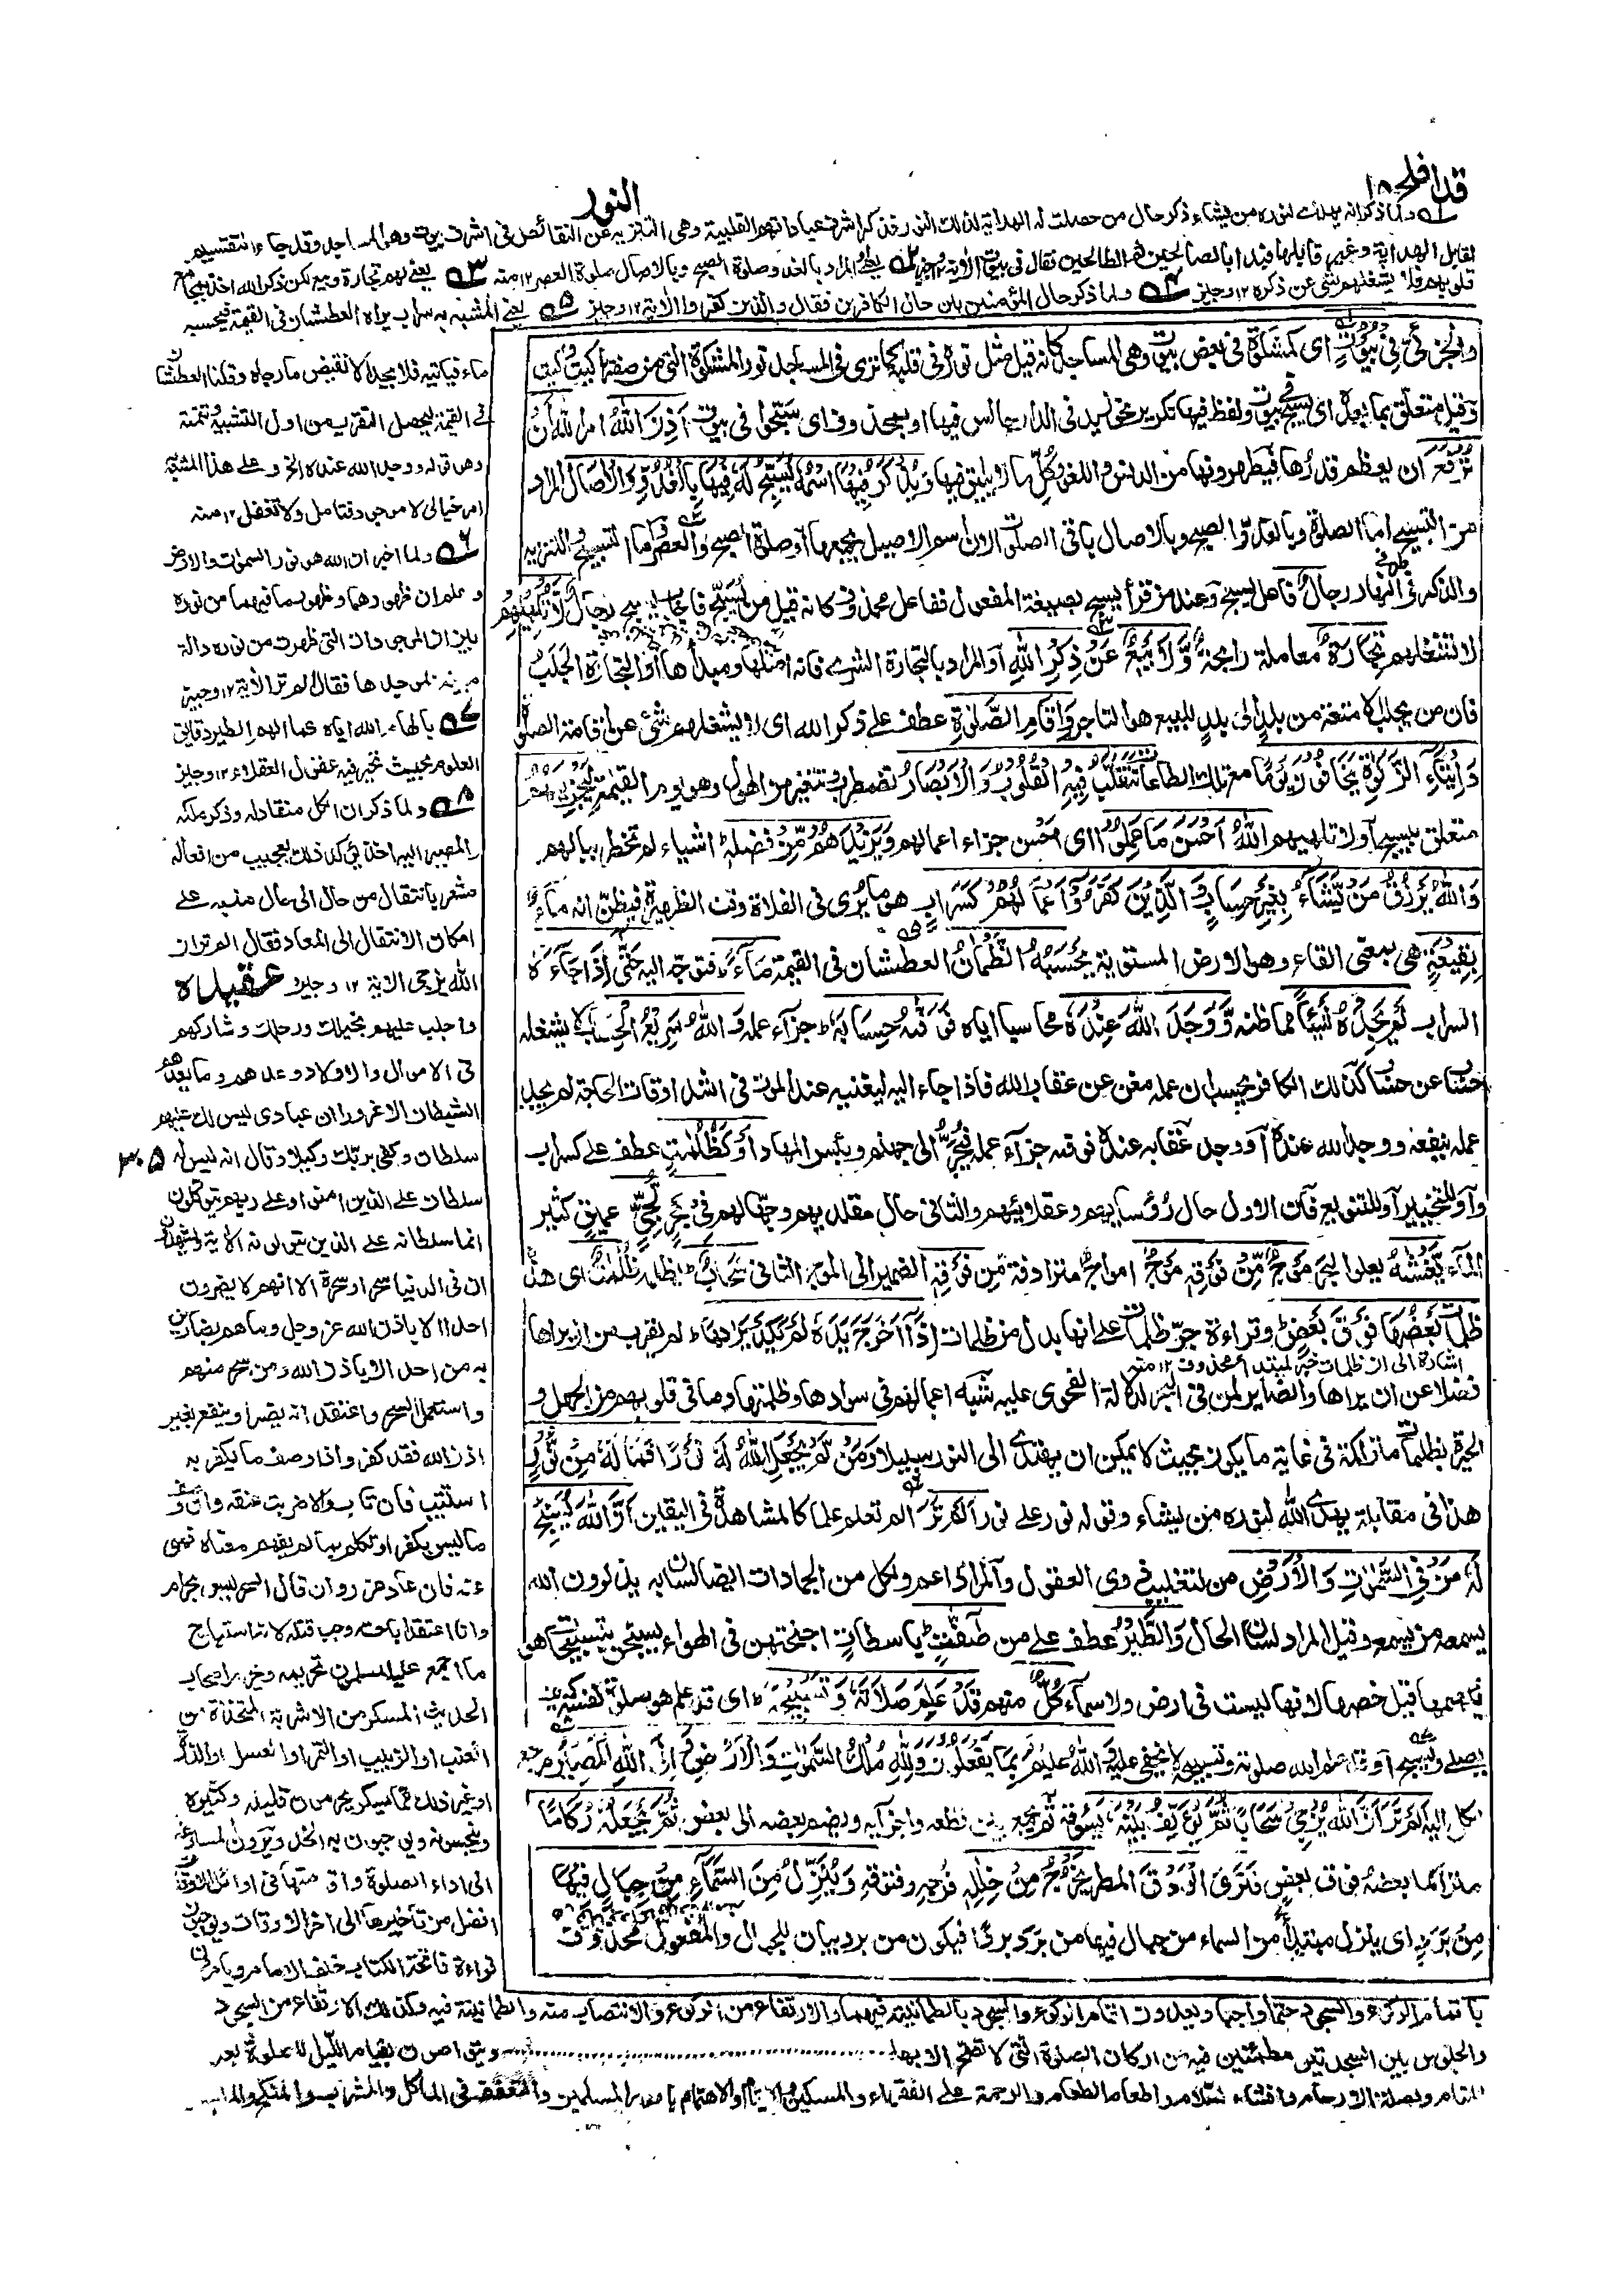 قد افلح ١٨
النور
٥١ ولما ذكر انه يهدى لنوره من يشاء ذكر حال من حصلت له الهداية لذلك النور فذكر اشرف عباداتهم القلبية وهى التنزيه عن النقائص فى اشرف بيوت وهى المساجد وقد جاء التقسيم
لقابل الهداية وغير قابلها فبدا بالصالحين ثم الطالحين فقال فى بيوت الاية ١٢ وجيز ٥٢ المراد بالغدو صلوة الصبح وبالاصال صلوة العصر ١٢ منه ٥٣ يعنى لهم تجارة وبيع لكن ذكر الله اخذ بمجامع
قلوبهم فلا يشغلهم شئ عن ذكره ١٢ وجيز ٥٤ ولما ذكر حال المؤمنين بان حال الكافرين فقال والذين كفروا الاية ١٢ وجيز ٥٥ يعنى المشبه به سراب يراه العطشان فى القيمة فيحسبه
فى بيوت اى كمشكوة فى بعض بيوت وهى المساجد كانه قيل مثل نوره فى قلبه كما ترى فى المسجد نور المشكوة التى من صفتها كيت وكيت
وقيل متعلق بما بعده اى يسبح فى بيوت ولفظ فيها تكرير نحو زيد فى الدار جالس فيها او بمحذوف اى سبحوا فى بيوت اَذِنَ اللّٰهُ امر الله اَنْ
تُرْفَعَ ان يعظم قدرها فيطهرونها من الدنس واللغو وكل ما لا يليق فيها وَيُذْكَرَ فِيْهَا اسْمُهٗ يُسَبِّحُ لَهٗ فِيْهَا بِالْغُدُوِّ وَالْاٰصَالِ المراد
من التسبيح اما الصلوة وبالغدو الصبح وبالاصال باقى الصلوت لان اسم الاصيل يجمعها او صلوة الصبح والعصر واما التسبيح والتنزيه
والذكر فى طرفى النهار رِجَالٌ فاعل يسبح وعند من قرأ يسبح بصيغة المفعول ففاعل محذوف كانه قيل من يسبح فاجاب يسبح رجال لَّا تُلْهِيْهِمْ
لا تشغلهم تِجَارَةٌ معاملة رابحة وَّلَا بَيْعٌ عَنْ ذِكْرِ اللّٰهِ او المراد بالتجارة الشرى فانه اصلها ومبدأها او التجارة الجلب
فان من يجلب الامتعة من بلد الى بلد للبيع هو التاجر وَاِقَامِ الصَّلٰوةِ عطف على ذكر الله اى لا يشغلهم شئ عن اقامة الصلوة
وَاِيْتَاءِ الزَّكٰوةِ يَخَافُوْنَ يَوْمًا مع تلك الطاعات تَتَقَلَّبُ فِيْهِ الْقُلُوْبُ وَالْاَبْصَارُ تضطرب وتتغير من الهول وهو يوم القيمة لِيَجْزِيَهُمُ
متعلق بيسبح او لا تلهيهم اللّٰهُ اَحْسَنَ مَا عَمِلُوْا اى احسن جزاء اعمالهم وَيَزِيْدَهُمْ مِّنْ فَضْلِهٖ اشياء لم تخطر ببالهم
وَاللّٰهُ يَرْزُقُ مَنْ يَّشَاءُ بِغَيْرِ حِسَابٍ وَالَّذِيْنَ كَفَرُوْا اَعْمَالُهُمْ كَسَرَابٍ هو ما يرى فى الفلاة وقت الظهيرة فيظن انه ماء
بِقِيْعَةٍ هى بمعنى القاع وهو الارض المستوية يَّحْسَبُهُ الظَّمْاٰنُ العطشان فى القيمة مَاءً فتوجه اليه حَتّٰى اِذَا جَاءَهٗ
السراب لَمْ يَجِدْهُ شَيْئًا مما ظنه وَّوَجَدَ اللّٰهَ عِنْدَهٗ محاسبا اياه فَوَفّٰىهُ حِسَابَهٗ جزاء عمله وَاللّٰهُ سَرِيْعُ الْحِسَابِ لا يشغله
حساب عن حساب كذلك الكافر يحسب ان عمله مغن عن عقاب الله فاذا جاء اليه ليغنيه عند الموت فى اشد اوقات الحاجة لم يجد
عمله ينفعه ووجد الله عنده او وجد عقابه عنده فوفه جزاء عمله فيجر الى جهنم وبئس المهاد اَوْ كَظُلُمٰتٍ عطف على كسراب
واو للتخيير او للتنويع فان الاول حال رؤسايهم وعقلايهم والثانى حال مقلديهم وجهالهم فِيْ بَحْرٍ لُّجِّيٍّ عميق كثير
الماء يَّغْشٰىهُ يعلو البحر مَوْجٌ مِّنْ فَوْقِهٖ مَوْجٌ امواج مترادفة مِّنْ فَوْقِهٖ الضمير الى الموج الثانى سَحَابٌ ظُلُمٰتٌ اى هذه
ظلمات بَعْضُهَا فَوْقَ بَعْضٍ وقراءة جر ظلمات على انها بدل من ظلمات اِذَا اَخْرَجَ يَدَهٗ لَمْ يَكَدْ يَرٰىهَا لم يقرب من ان يراها
اشارة الى ان ظلمات خبر لمبتدا محذوف ١٢ منه
فضلا عن ان يراها والضماير لمن فى البحر لدلالة الفحوى عليه شبه اعمالهم فى سوادها وظلمتها وما فى قلوبهم من الجهل و
الحيرة بظلمات متراكمة فى غاية ما يكون بحيث لا يمكن ان يهتدى الى النور سبيلا وَمَنْ لَّمْ يَجْعَلِ اللّٰهُ لَهٗ نُوْرًا فَمَا لَهٗ مِنْ نُّوْرٍ
هذا فى مقابلة يهدى الله لنوره من يشاء وقوله نور على نور اَلَمْ تَرَ الم تعلم علما كالمشاهدة فى اليقين اَنَّ اللّٰهَ يُسَبِّحُ
لَهٗ مَنْ فِي السَّمٰوٰتِ وَالْاَرْضِ من لتغليب ذوى العقول والمراد اعم ولكل من الجمادات ايضا لسان به يذكرون الله
يسمعه من يسمعه وقيل المراد لسان الحال وَالطَّيْرُ عطف على من صٰفّٰتٍ باسطات اجنحتهن فى الهواء يسبحن بتسبيح
قيل خصها لانها ليست فى ارض ولا سماء كُلٌّ منهم قَدْ عَلِمَ صَلَاتَهٗ وَتَسْبِيْحَهٗ اى قد علم هو صلوة نفسه
يصلى ويسبح او قد علم الله صلوته وتسبيحه لا يخفى عليه وَاللّٰهُ عَلِيْمٌ بِمَا يَفْعَلُوْنَ وَلِلّٰهِ مُلْكُ السَّمٰوٰتِ وَالْاَرْضِ وَاِلَى اللّٰهِ الْمَصِيْرُ مرجع
كل اليه اَلَمْ تَرَ اَنَّ اللّٰهَ يُزْجِيْ سَحَابًا ثُمَّ يُؤَلِّفُ بَيْنَهٗ يسوقه ثم يجمع بين قطعه واجزائه ويضم بعضه الى بعض ثُمَّ يَجْعَلُهٗ رُكَامًا
متراكما بعضه فوق بعض فَتَرَى الْوَدْقَ المطر يَخْرُجُ مِنْ خِلٰلِهٖ فرجه وفتوقه وَيُنَزِّلُ مِنَ السَّمَاءِ مِنْ جِبَالٍ فِيْهَا
مِنْ بَرَدٍ اى ينزل مبتدأ من السماء من جبال فيها من برد بردا فيكون من برد بيان للجبال والمفعول محذوف
ماء فياتيه فلا يجده لا نقيض ما رجاه وقلنا العطشان
فى القيمة ليحصل المقرب من اول التشبيه وتتمته
وهى قوله ووجد الله عنده الخ وعلى هذا المشبه
امر خيالى لا موجود فتامل ولا تغفل ١٢ منه
٥٦ ولما اخبر ان الله هو نور السموات والارض
وعلم ان ظهورهما وظهور ما فيهما من نوره
بين ان الموجودات التى ظهرت من نوره دالة
لموجدها فقال الم تر الاية ١٢ وجيز
٥٧ بالهام الله اياه كما الهم الطير دقايق
العلوم بحيث تتحير فيه عقول العقلاء ١٢ وجيز
٥٨ ولما ذكر ان الكل منقاد له وذكر ملكه
والمصير اليه اخذ يذكر ذلك بعجيب من افعاله
مشعر بانتقال من حال الى حال منبه على
امكان الانتقال الى المعاد فقال الم تر ان
الله يزجى الاية ١٢ وجيز
واجلب عليهم بخيلك ورجلك وشاركهم
فى الاموال والاولاد وعدهم وما يعدهم
الشيطان الا غرورا ان عبادى ليس لك عليهم
سلطان وكفى بربك وكيلا وقال انه ليس له
سلطان على الذين امنوا وعلى ربهم يتوكلون
انما سلطانه على الذين يتولونه الاية
ان فى الدنيا سحرا وسحرة الا انهم لا يضرون
احدا الا باذن الله عز وجل وما هم بضارين
به من احد الا باذن الله ومن سحر منهم
واستعمل السحر واعتقد انه يضر او ينفع بغير
اذن الله فقد كفر واذا وصف ما يكفر به
استتيب فان تاب والا ضربت عنقه وان وصف
ما ليس بكفر او تكلم بما لم يفهم معناه نهى
عنه فان عاد عزر وان قال السحر ليس بحرام
وانا اعتقد اباحته وجب قتله لانه استباح
ما اجمع عليه المسلمون تحريمه
الحديث المسكر من الاشربة المتخذة من
العنب او الزبيب او التمر او العسل او الذرة
او غير ذلك مما يسكر يحرمون قليله وكثيره
وينجسونه ويوجبون به الحد ويرون المسارعة
الى اداء الصلوة واقامتها فى اوائل الاوقات
افضل من تاخيرها الى اخر الاوقات ويوجبون
قراءة فاتحة الكتاب خلف الامام ويامرون
باتمام الركوع والسجود حتما واجبا ويعدون اتمام الركوع والسجود بالطمانينة فيهما والارتفاع من الركوع والانتصاب منه والطمانينة فيه وكذلك الارتفاع من السجود
والجلوس بين السجدتين مطمئنين فيه من اركان الصلوة التى لا تصح الا بها ويتواصون بقيام الليل للصلوة بعد
المنام وبصلة الارحام وافشاء السلام واطعام الطعام والرحمة على الفقراء والمساكين والايتام والاهتمام بامور المسلمين والتعفف فى الماكل والمشرب والمنكح والملبس